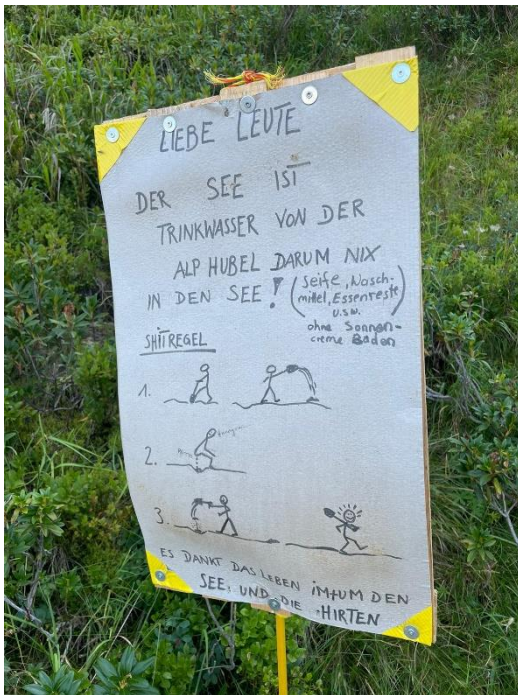 LIEBE LEUTE
DER SEE IST
TRINKWASSER VON DER
ALP HUBEL DARUM NIX
IN DEN SEE! (Seife, Wasch-
mittel, Essenreste)
u.s.w.
ohne Sonnen-
creme Baden
SHIT REGEL
1.
2.
3.
ES DANKT DAS LEBEN IM+UM DEN
SEE, UND DIE HIRTEN